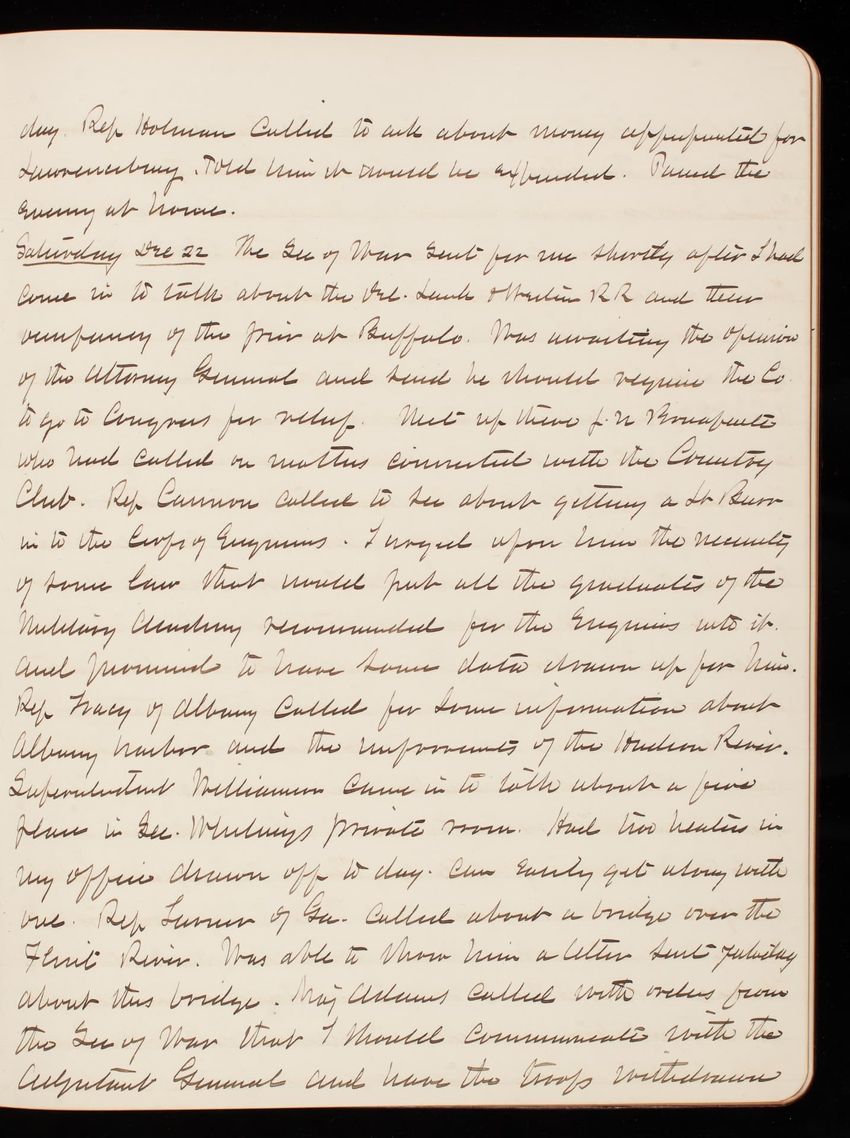 day. Rep Holman called to ask about money appropriated for
Lawrenceburg. Told him it would be expended. Passed the
evening at home.
Saturday Dec 22 The Sec of War sent for me shortly after I had
come in to talk about the Del. Lack & Western RR and their
occupancy of the pier at Buffalo. Was awaiting the opinion
of the Attorney General and said he should require the Co.
to go to Congress for relief. Met up there J. N Bonaparte
who had called on matters connected with the Country
Club. Rep Cannon called to see about getting a Lt Burr
in to the Corps of Engineers. I urged upon him the necessity
of some law that would put all the graduates of the
Military Academy recommended for the Engineers into it.
and promised to have some data drawn up for him.
Rep Tracy of Albany called for some information about
Albany harbor and the improvements of the Hudson River.
Superintendent Williamson came in to talk about a fire
place in Sec. Whitneys private room. Had two heaters in
my office drawn off to day. Can easily get along with
one. Rep Turner of Ga. called about a bridge over the
Flint River. Was able to show him a letter sent yesterday
about this bridge. Maj Adams called with orders from
the Sec of War that I should communicate with the
Adjutant General and have the troops withdrawn